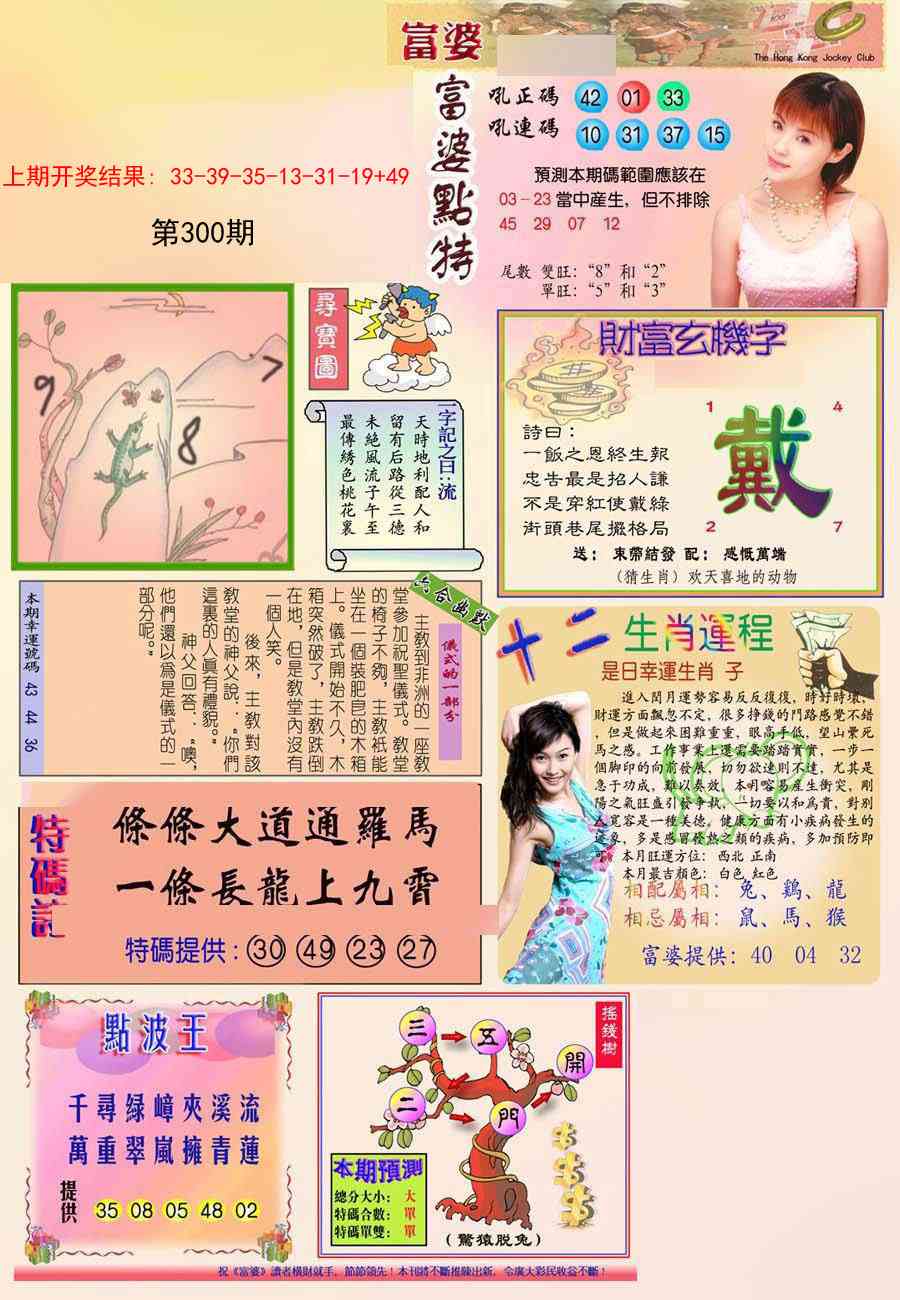 富婆
The Hong Kong Jockey Club
富婆點特
吼正碼 42 01 33
吼連碼 10 31 37 15
預測本期碼範圍應該在
03-23 當中産生，但不排除
45 29 07 12
尾數 雙旺：“8”和“2”
單旺：“5”和“3”
上期开奖结果: 33-39-35-13-31-19+49
第300期
9
7
8
尋寶圖
一字記之曰：流
天時地利配人和
留有后路從三德
未絶風流子午至
最傳綉色桃花裏
財富玄機字
詩曰：
一飯之恩終生報
忠告最是招人謙
不是穿紅使戴綠
街頭巷尾擺格局
1
4
戴
2
7
送： 束帶結發 配： 感慨萬端
（猜生肖）欢天喜地的动物
六合幽默
儀式的一部分
主教到非洲的一座教
堂參加祝聖儀式。教堂
的椅子不夠，主教祇能
坐在一個裝肥皂的木箱
上。儀式開始不久，木
箱突然破了，主教跌倒
在地，但是教堂內沒有
一個人笑。
後來，主教對該
教堂的神父說：“你們
這裏的人眞有禮貌。”
神父回答：“噢，
他們還以爲是儀式的一
部分呢。”
本期幸運號碼 43 44 36
十二生肖運程
是日幸運生肖 子
進入閏月運勢容易反反復復，時好時壞，
財運方面飄忽不定，很多掙錢的門路感覺不錯
，但是做起來困難重重，眼高手低，望山累死
馬之感。工作事業上還需要踏踏實實，一步一
個脚印的向前發展，切勿欲速則不達，尤其是
急于功成，難以奏效。本明容易産生衝突，剛
陽之氣旺盛引發争執，一切要以和爲貴，對别
人寬容是一種美德。健康方面有小疾病發生的
迹象，多是感冒發熱之類的疾病，多加預防即
可。本月旺運方位： 西北 正南
本月最吉顏色： 白色 紅色
相配屬相： 兔、鷄、龍
相忌屬相： 鼠、馬、猴
富婆提供：40 04 32
特碼詩
條條大道通羅馬
一條長龍上九霄
特碼提供：30 49 23 27
點波王
千尋绿嶂夾溪流
萬重翠嵐擁青蓮
提供 35 08 05 48 02
搖錢樹
三
五
開
二
門
本期預測
總分大小： 大
特碼合數： 單
特碼單雙： 單
（驚猿脱兔）
祝《富婆》讀者橫財就手，節節領先！本刊將不斷推陳出新，令廣大彩民收益不斷！